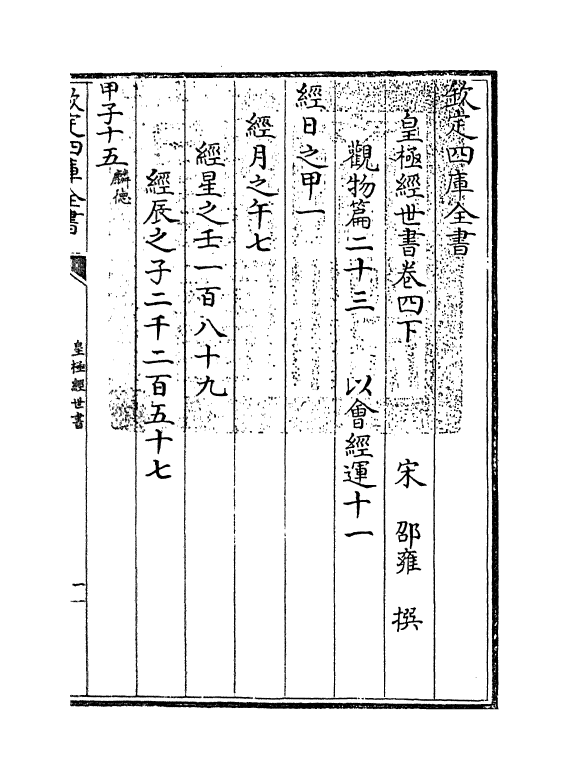 欽定四庫全書
皇極經世書卷四下
宋 邵雍 撰
觀物篇二十三 以會經運十一
經日之甲一
經月之午七
經星之壬一百八十九
經辰之子二千二百五十七
甲子十五麟德
欽定四庫全書
皇極經世書
一